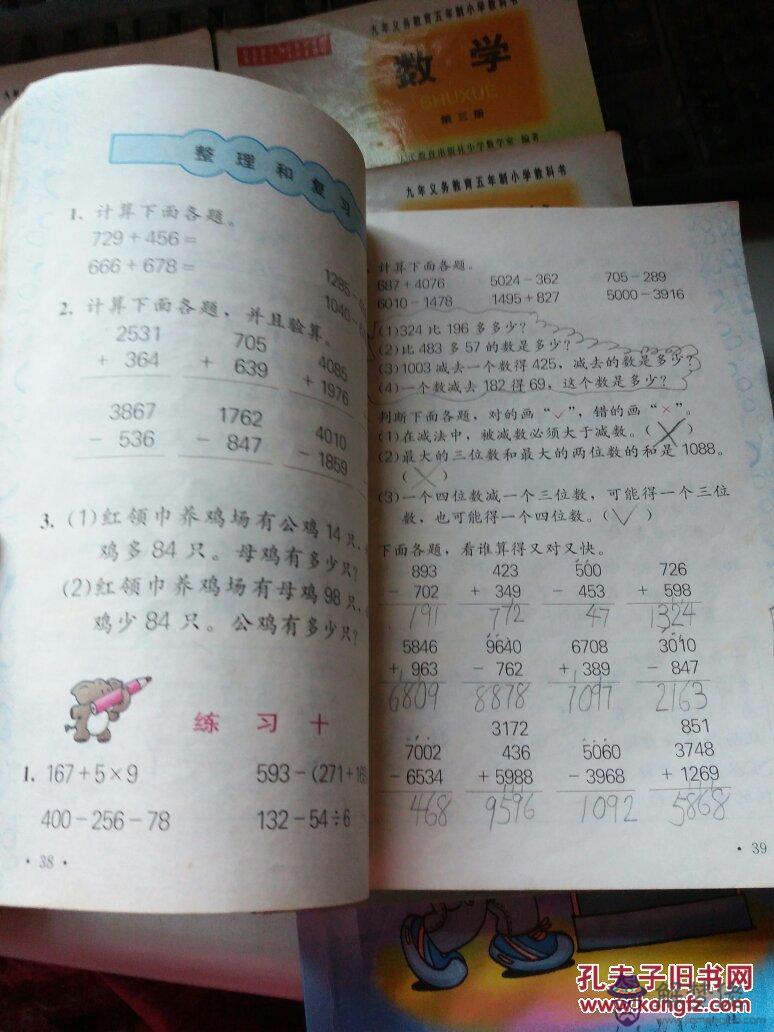 九年义务教育五年制小学教科书
数学
SHUXUE
第三册
小学数学室 编著
九年义务教育五年制小学教科书
整理和复习
1. 计算下面各题。
729+456=
666+678=
1285-
1040-
2. 计算下面各题，并且验算。
2531 705 4085
+ 364 + 639 +1976
3867 1762 4010
- 536 - 847 -1859
3. (1)红领巾养鸡场有公鸡 14 只，
鸡多 84 只。母鸡有多少只？
(2)红领巾养鸡场有母鸡 98 只，
鸡少 84 只。公鸡有多少只？
练习十
1. 167+5×9 593-(271+16
400-256-78 132-54÷6
·38·
计算下面各题。
687+4076 5024-362 705-289
6010-1478 1495+827 5000-3916
(1)324 比 196 多多少？
(2)比 483 多 57 的数是多少？
(3)1003 减去一个数得 425，减去的数是多少？
(4)一个数减去 182 得 69，这个数是多少？
判断下面各题，对的画“✓”，错的画“×”。
(1)在减法中，被减数必须大于减数。(×)
(2)最大的三位数和最大的两位数的和是 1088。
(×)
(3)一个四位数减一个三位数，可能得一个三位
数，也可能得一个四位数。(✓)
下面各题，看谁算得又对又快。
893 423 500 726
- 702 + 349 - 453 + 598
191 772 47 1324
5846 9640 6708 3010
+ 963 - 762 + 389 - 847
6809 8878 7097 2163
3172 851
7002 436 5060 3748
- 6534 + 5988 - 3968 + 1269
468 9596 1092 5868
·39
孔夫子旧书网
www.kongfz.com